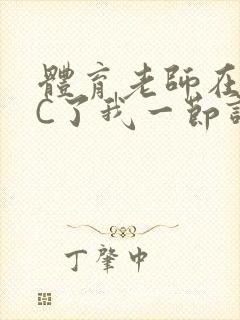 體育老師在
C了我一節
丁肇中